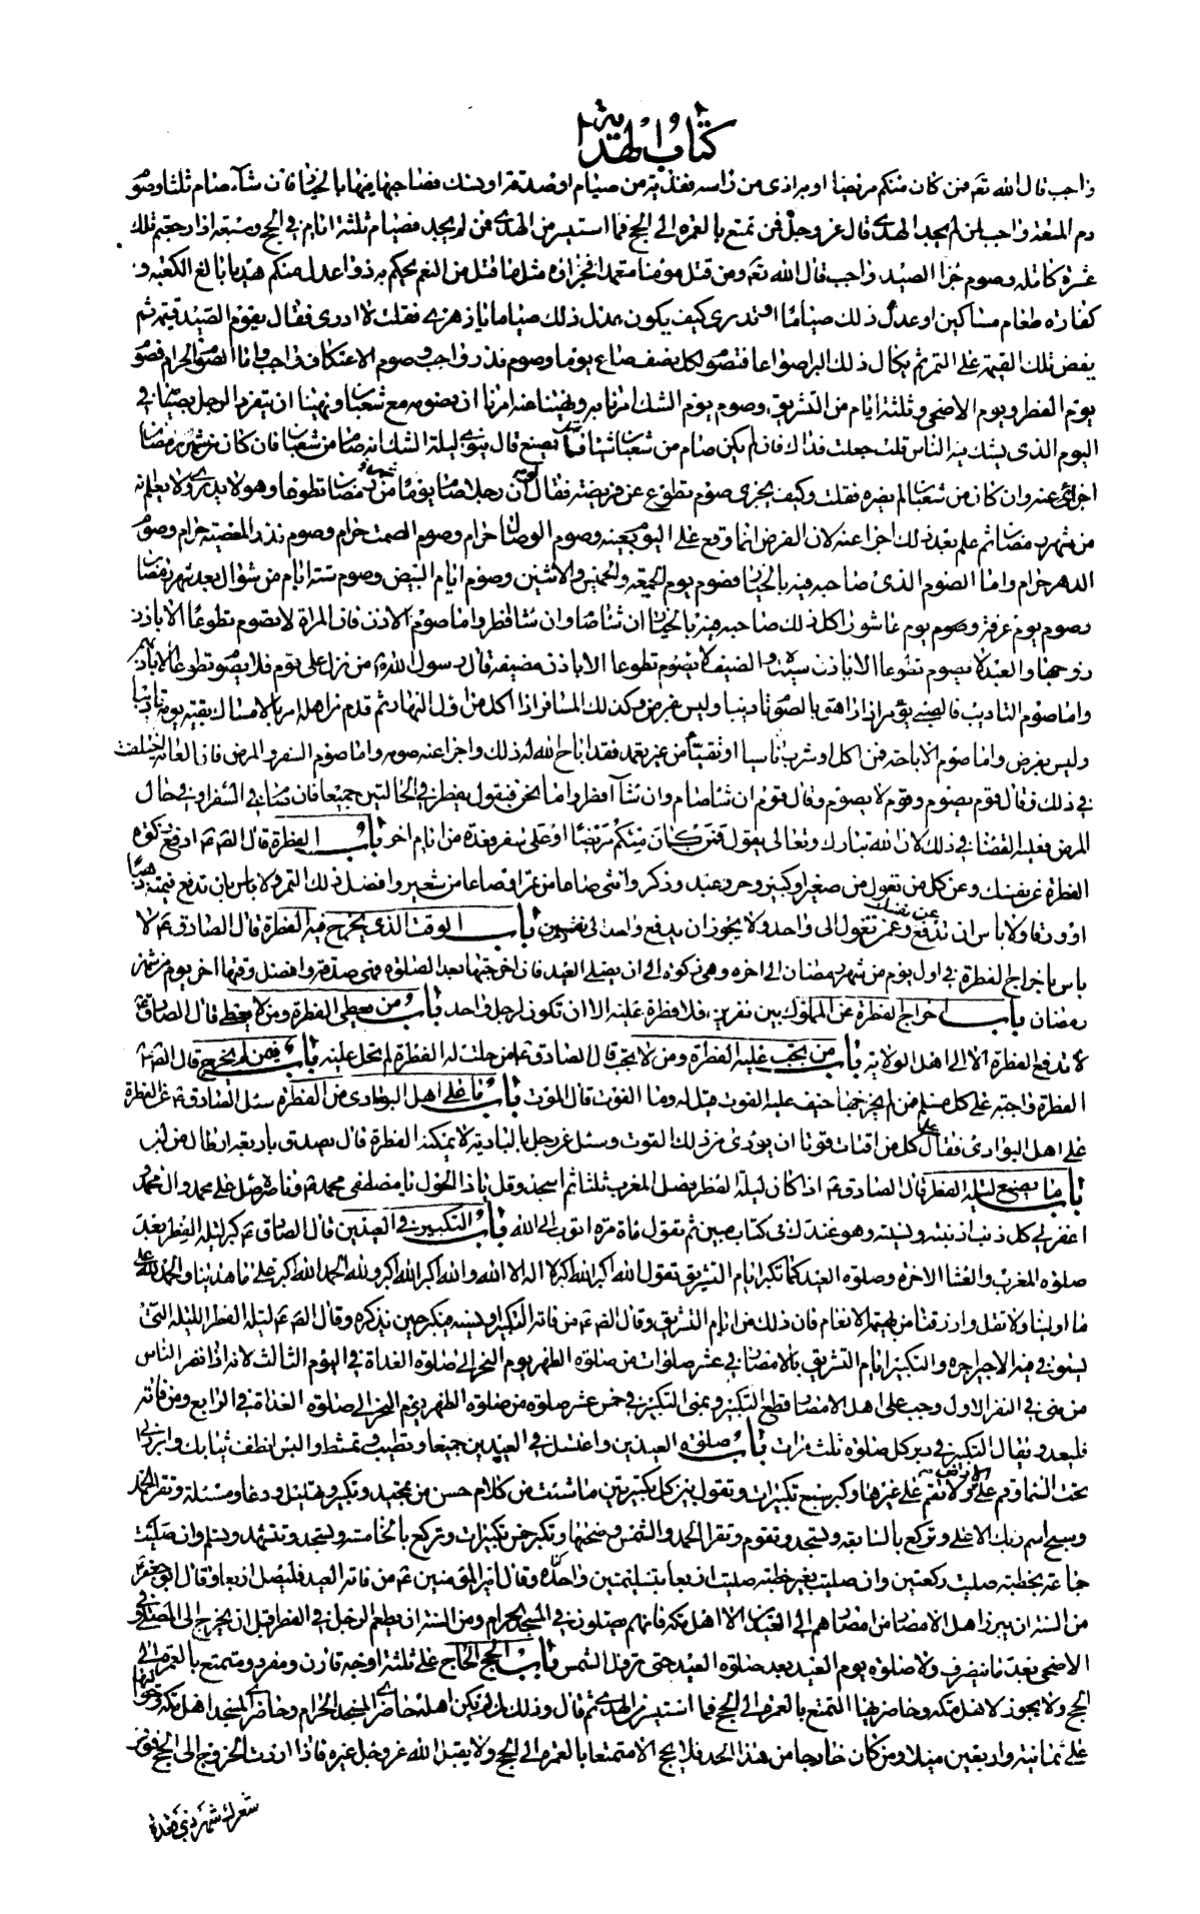 كتاب الهداية
واجب قال الله تعم فمن كان منكم مريضا او به اذى من راسه ففدية من صيام او صدقة او نسك فصاحبها فيها بالخيار فان شاء صام ثلثا وصوم
دم المتعة واجب لمن لم يجد الهدى قال عز وجل فمن تمتع بالعمرة الى الحج فما استيسر من الهدى فمن لم يجد فصيام ثلثة ايام في الحج وسبعة اذا رجعتم تلك
عشرة كاملة وصوم جزا الصيد واجب قال الله تعم ومن قتل منكم متعمدا فجزاؤه مثل ما قتل من النعم يحكم به ذوا عدل منكم هديا بالغ الكعبة و
كفارة طعام مساكين او عدل ذلك صياما او تدرى كيف يكون عدل ذلك صياما يا زهرى فقلت لا ادرى فقال يقوم الصيد قيمة ثم
يفض تلك القيمة على البر ثم يكال ذلك البر اصواعا فتصوم لكل نصف صاع يوما وصوم نذر واجب وصوم الاعتكاف واجب واما الصوم الحرام فصوم
يوم الفطر ويوم الاضحى وثلثة ايام من التشريق وصوم يوم الشك امرنا به ونهينا عنه امرنا ان نصومه مع شعبان ونهينا ان يتفرد الرجل بصيامه في
اليوم الذى يشك فيه الناس قلت جعلت فداك فان لم يكن صام من شعبان شيئا كيف يصنع قال ينوى ليلة الشك انه صام من شعبان فان كان من شهر رمضان
اجزى عنه وان كان من شعبان لم يضره فقلت وكيف يجزى صوم تطوع عن فريضة فقال لو ان رجلا صام يوما من شهر رمضان تطوعا وهو لا يدرى ولا يعلم انه
من شهر رمضان ثم علم بعد ذلك اجزا عنه لان الفرض انما وقع على اليوم بعينه وصوم الوصال حرام وصوم الصمت حرام وصوم نذر المعصية حرام وصوم
الدهر حرام واما الصوم الذى صاحبه فيه بالخيار فصوم يوم الجمعة والخميس والاثنين وصوم ايام البيض وصوم ستة ايام من شوال بعد شهر رمضان
وصوم يوم عرفة وصوم يوم عاشورا كل ذلك صاحبه فيه بالخيار ان شا صام وان شا افطر واما صوم الاذن فان المراة لا تصوم تطوعا الا باذن
زوجها والعبد لا يصوم تطوعا الا باذن سيده والضيف لا يصوم تطوعا الا باذن مضيفه قال رسول الله ص من نزل على قوم فلا يصوم تطوعا الا باذنهم
واما صوم التاديب فالصبى يؤمر اذا راهق بالصوم تاديبا وليس بفرض وكذلك المسافر اذا اكل من اول النهار ثم قدم من اهله امر بالامساك بقية يومه تاديبا
وليس بفرض واما صوم الاباحة فمن اكل او شرب ناسيا او تقيأ من غير تعمد فقد اباح الله له ذلك واجزا عنه صومه واما صوم السفر والمرض فان العامة اختلفت
في ذلك فقال قوم يصوم وقوم لا يصوم وقال قوم ان شا صام وان شا افطر واما نحن فنقول يفطر في الحالتين جميعا فان صام في السفر او في حال
المرض فعليه القضا في ذلك لان الله تبارك وتعالى يقول فمن كان منكم مريضا او على سفر فعدة من ايام اخر باب الفطرة قال الصم ع ادفع زكوة
الفطرة عن نفسك وعن كل من تعول من صغير او كبير وحر وعبد وذكر وانثى صاعا من تمر او صاعا من شعير وافضل ذلك التمر ولا باس بان تدفع قيمته ذهبا
او ورقا ولا باس ان تدفع عن نفسك وعمن تعول الى واحد ولا يجوز ان يدفع واحد الى نفسين باب الوقت الذى يخرج فيه الفطرة قال الصادق ع لا
باس باخراج الفطرة في اول يوم من شهر رمضان الى اخره وهى زكوة الى ان يصلى العيد فان اخرجتها بعد الصلوة فهى صدقة وافضل وقتها اخر يوم من شهر
رمضان باب اخراج الفطرة عن المملوك بين نفرين فلا فطرة عليه الا ان تكون لرجل واحد باب من يعطى الفطرة ومن لا يعطى قال الصادق ع
لا تدفع الفطرة الا الى اهل الولاية باب من يجب عليه الفطرة ومن لا يجب قال الصادق ع من حلت له الفطرة لم يحل عليه باب فيمن لم يخرج قال الصم ع
الفطرة واجبة على كل مسلم فمن لم يخرجها خيف عليه الفوت فقيل له وما الفوت قال الموت باب ما على اهل البوادى من الفطرة سئل الصادق ع عن الفطرة
على اهل البوادى فقال على كل من اقتات قوتا ان يؤدى من ذلك القوت وسئل عن رجل بالبادية لا يمكنه الفطرة قال يصدق باربعة ارطال من لبن
باب ما يصنع ليلة الفطر قال الصادق ع اذا كان ليلة الفطر فصل المغرب ثلثا ثم اسجد وقل يا ذا الحول يا مصطفى محمد ص وناصره صل على محمد وال محمد و
اغفر لى كل ذنب اذنبته ونسيته وهو عندك في كتاب مبين ثم تقول مأة مرة اتوب الى الله باب التكبير في العيدين قال الصادق ع كبر ليلة الفطر بعد
صلوة المغرب والعشا الاخرة وصلوة العيد كما تكبر ايام التشريق تقول الله اكبر الله اكبر لا اله الا الله والله اكبر الله اكبر ولله الحمد الله اكبر على ما هدينا والحمد لله على
ما اولينا ولا تقل ورزقنا من بهيمة الانعام فان ذلك من ايام التشريق وقال الصم ع من فاته التكبير او نسيه فليكبر حين يذكره وقال الصم ع ليلة الفطر الليلة التى
يستوفى فيه الاجير اجره والتكبير ايام التشريق بالامصار في عشر صلوات من صلوة الظهر يوم النحر الى صلوة الغداة في اليوم الثالث لانه اذا نفر الناس
من منى في النفر الاول وجب على اهل الامصار قطع التكبير وبمنى التكبير في خمس عشر صلوة من صلوة الظهر يوم النحر الى صلوة الغداة في الرابع ومن فاته
فليعد ويقال التكبير في دبر كل صلوة ثلث مرات باب صلوة العيدين واغتسل في العيدين جميعا وتطيب وتمشط والبس انظف ثيابك وابرز الى
تحت السما وقم على الارض ولا تقم على غيرها وكبر سبع تكبيرات وتقول بين كل تكبيرتين ما شئت من كلام حسن من تحميد وتكبير وتهليل ودعا ومسئلة وتقرا الحمد
وسبح اسم ربك الاعلى وتركع بالسابعة وتسجد وتقوم وتقرا الحمد والشمس وضحيها وتكبر خمس تكبيرات وتركع بالخامسة وتسجد وتتشهد وتسلم وان صليت
جماعة بخطبة صليت ركعتين وان صليت بغير خطبة صليت اربعا بتسليمتين واحدة وقال امير المؤمنين ع من فاته العيد فليصل اربعا وقال ابو جعفر ع
من السنة ان يبرز اهل الامصار من امصارهم الى العيدين الا اهل مكة فانهم يصلون في المسجد الحرام ومن السنة ان يطعم الرجل في الفطر قبل ان يخرج الى المصلى وفي
الاضحى بعد ما ينصرف ولا صلوة يوم العيد بعد صلوة العيد حتى تزول الشمس باب الحج الحاج على ثلثة اوجه قارن ومفرد ومتمتع بالعمرة الى
الحج ولا يجوز لاهل مكة وحاضريها التمتع بالعمرة الى الحج فما استيسر من الهدى ثم قال وذلك لمن لم يكن اهله حاضرى المسجد الحرام وحاضرى المسجد اهل مكة وحواليها
على ثمانية واربعين ميلا ومن كان خارجا من هذا الحد فلا يحج الا متمتعا بالعمرة الى الحج ولا يقبل الله عز وجل غيره فاذا اردت الخروج الى الحج فوفر
شعرك شهر ذى قعدة